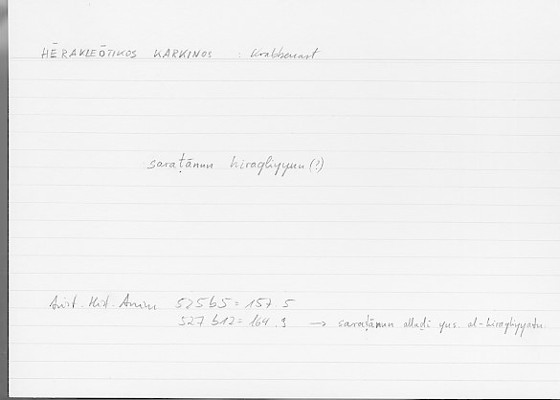 HĒRAKLEŌTIKOS KARKINOS : Krabbenart
saraṭānun hiraqliyyun (?)
Arist. Hist. Anim 525 b5 = 157.5
527 b12 = 164.9 → saraṭānun allaḏī yus. al-hiraqliyyatu.